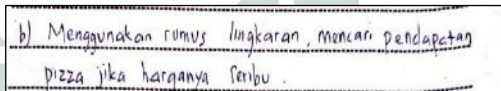 b) Menggunakan rumus lingkaran, mencari pendapatan
pizza jika harganya seribu.